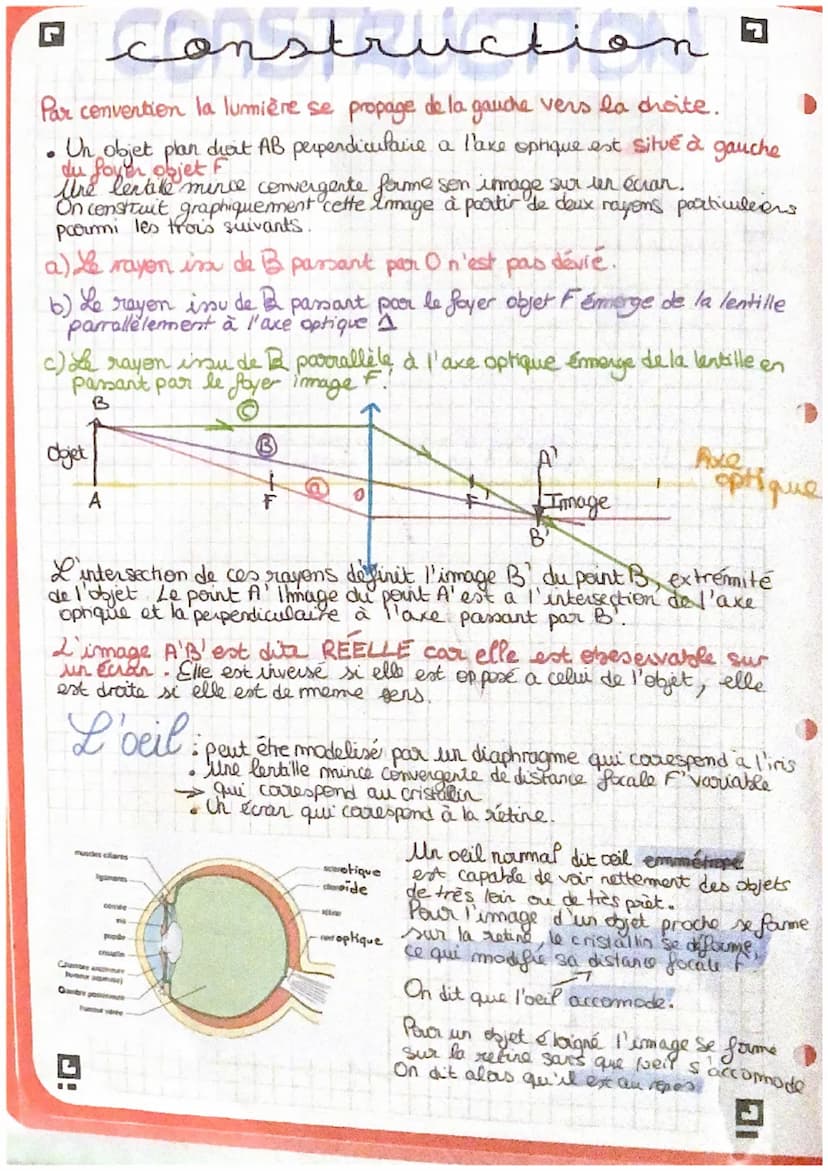 CONSTRUCTION
construction
Par convention la lumière se propage de la gauche vers la droite.
• Un objet plan droit AB perpendiculaire a l'axe optique est situé à gauche
du foyer objet F
Une lentille mince convergente forme son image sur un écran.
On construit graphiquement cette image à partir de deux rayons particuliers
parmi les trois suivants.
a) Le rayon issu de B passant par O n'est pas dévié.
b) Le rayon issu de B passant par le foyer objet F émerge de la lentille
parrallèlement à l'axe optique Δ
c) Le rayon issu de B parrallèle à l'axe optique émerge de la lentille en
passant par le foyer image F'.
B
C
Objet
B
A'
Axe
optique
A
F
a
O
F'
Image
B'
L'intersection de ces rayons définit l'image B' du point B, extrémité
de l'objet. Le point A' image du point A' est a l'intersection de l'axe
optique et la perpendiculaire à l'axe passant par B'.
L'image A'B' est dite RÉELLE car elle est obeservable sur
un écran. Elle est inversé si elle est opposé a celui de l'objet, elle
est droite si elle est de meme sens.
L'oeil : peut être modelisé par un diaphragme qui corespond à l'iris
• Une lentille mince convergente de distance focale F' variable
→ qui corespond au cristallin
• Un écran qui corespond à la rétine.
muscles ciliaires
ligaments
cornée
iris
pupille
cristallin
Chambre antérieure
(humeur aqueuse)
Chambre postérieure
humeur vitrée
sclérotique
choroïde
rétine
nerf optique
Un oeil normal dit oeil emmétrope
est capable de voir nettement des objets
de très loin ou de très prêt.
Pour l'image d'un objet proche se forme
sur la retine, le cristallin se déforme,
ce qui modifie sa distance focale f'.
On dit que l'oeil accomode.
Pour un objet éloigné l'image se forme
sur la retine sans que l'oeil s'accomode
On dit alors qu'il est au repos